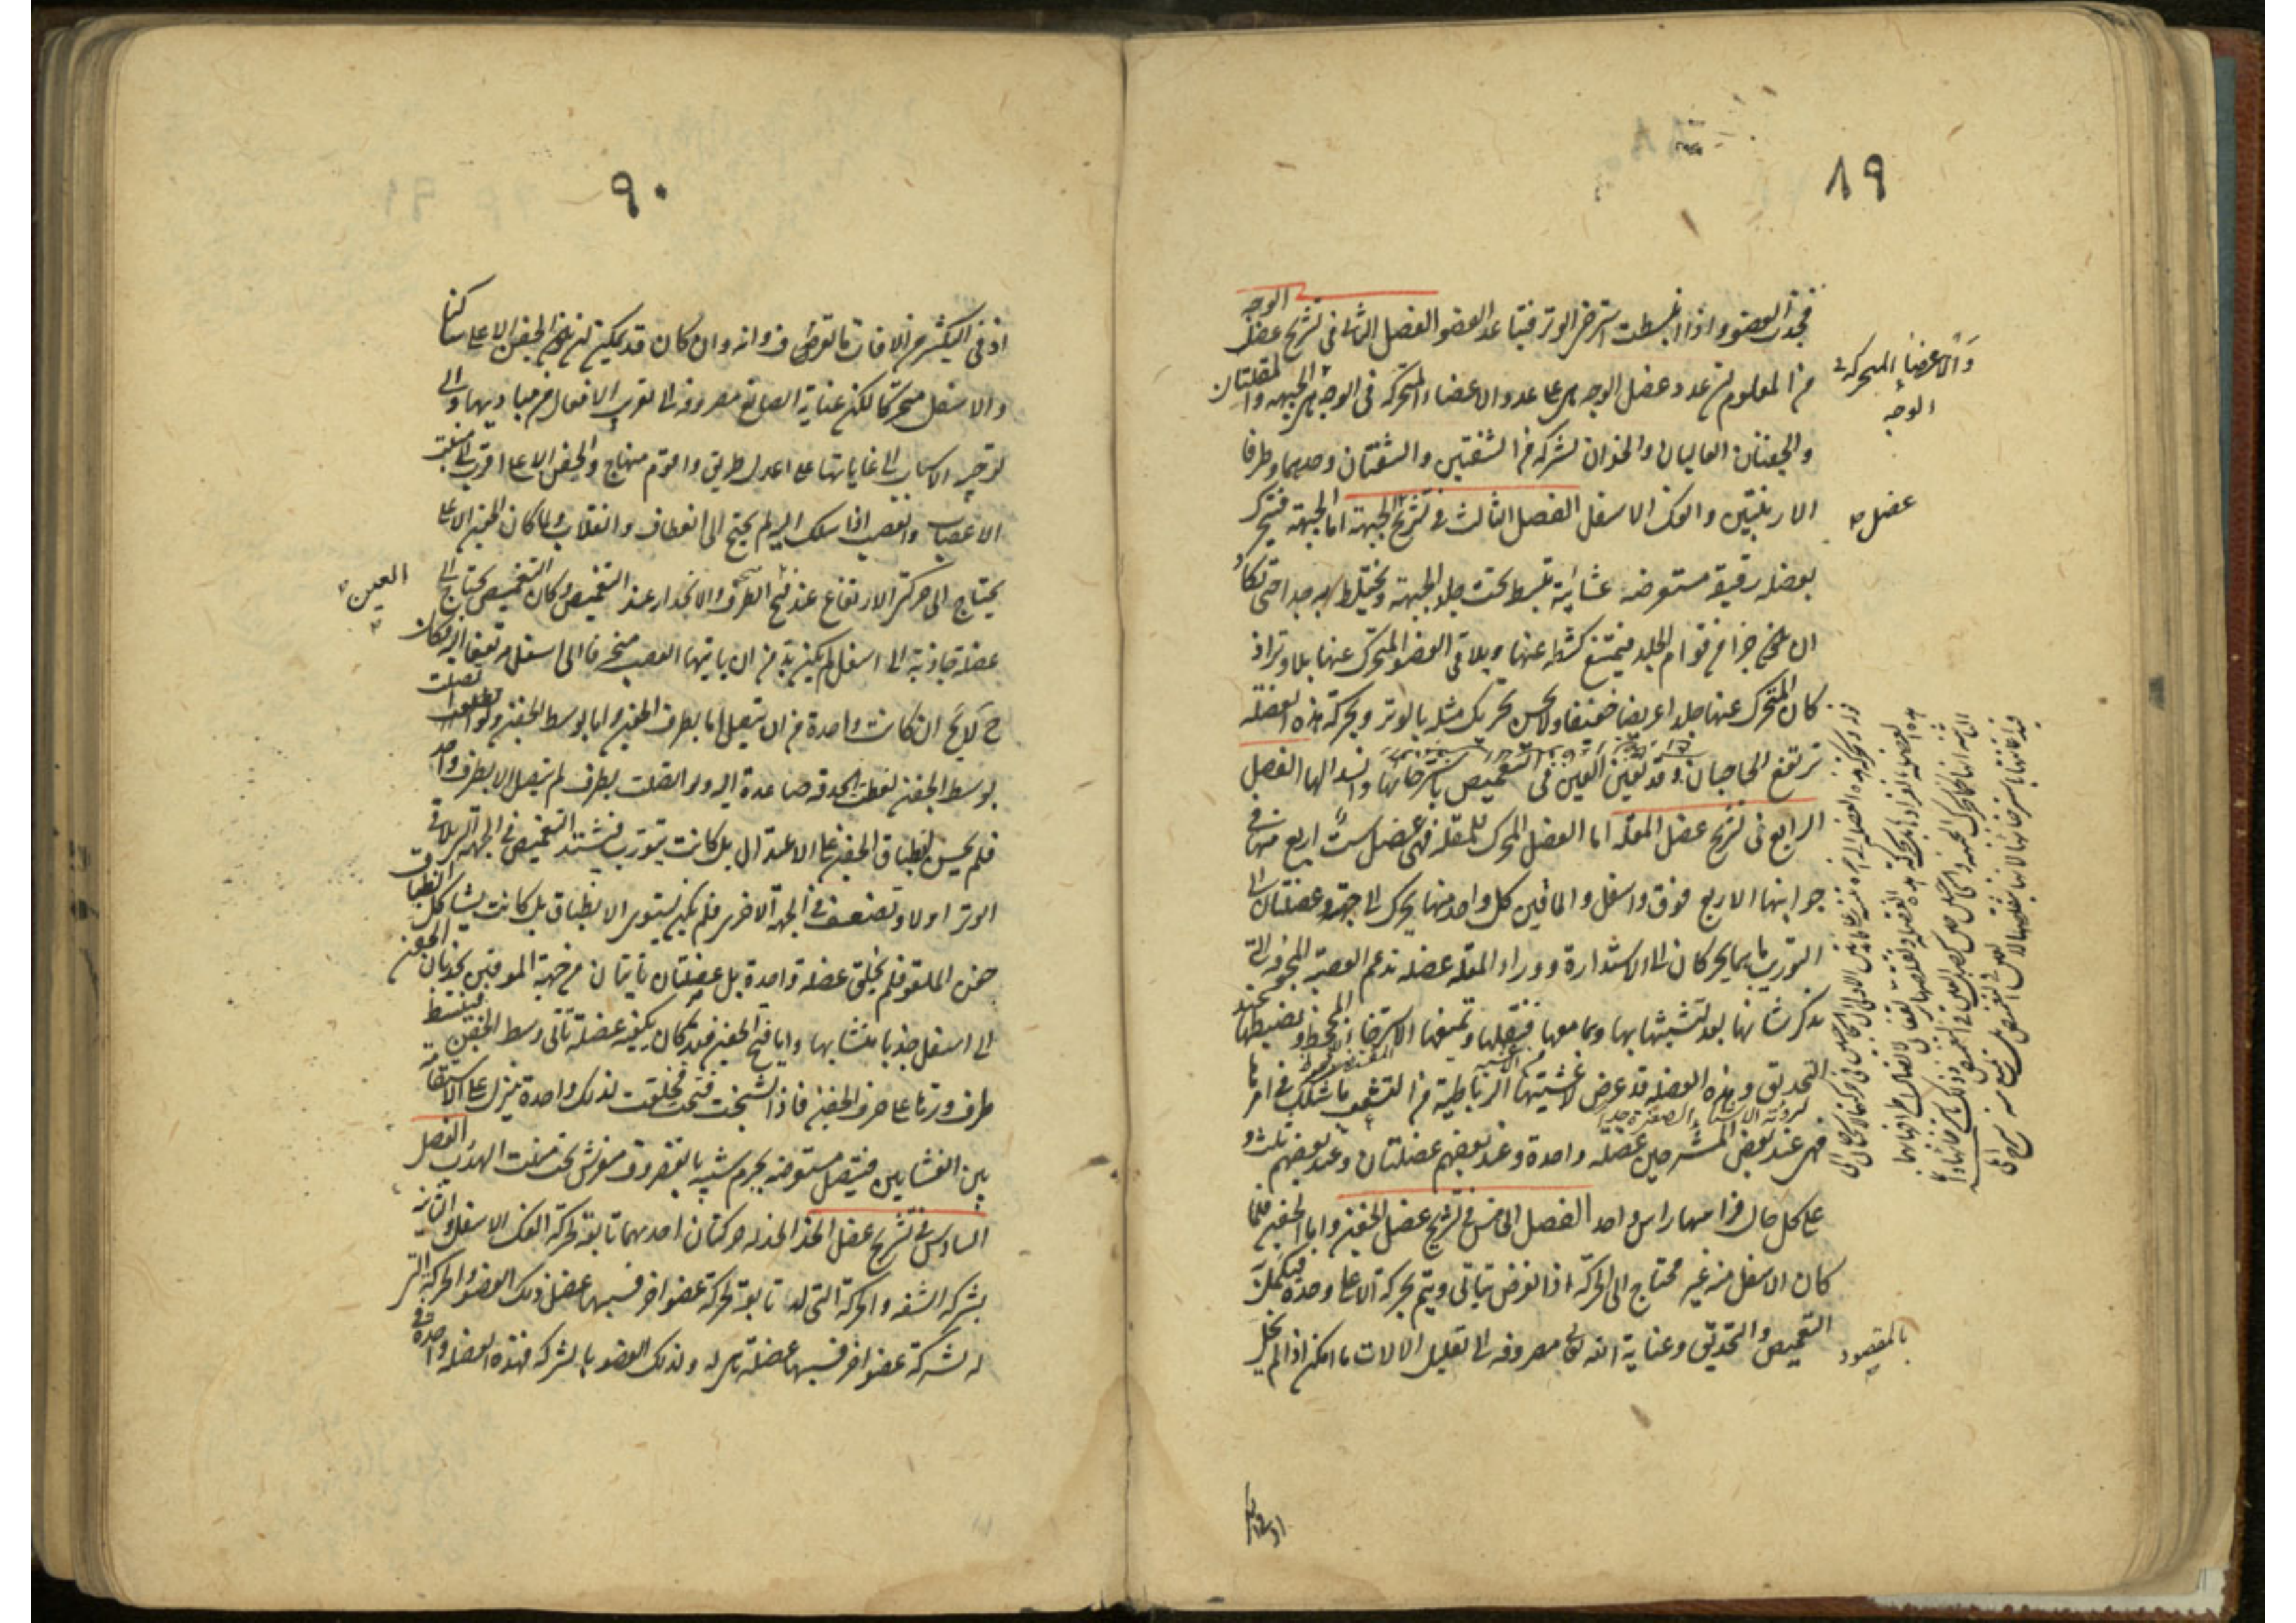 ٨٩
فيجذب العضو واذا انبسطت استرخى الوتر فتباعد العضو الفصل الثانى فى تشريح عضل الوجه
من المعلوم ان عدد عضل الوجه هى على عدد الاعضاء المتحركة فى الوجه هى الجبهة والمقلتان
والجفنان العاليان والخدان بشركة من الشفتين والشفتان وحدهما وطرفا
الارنبتين والفك الاسفل الفصل الثالث فى تشريح الجبهة اما الجبهة فتتحرك
بعضلة رقيقة مستعرضة غشائية تنبسط تحت جلد الجبهة وتختلط به جدا حتى تكاد
ان يكون جزءا من قوام الجلد فيمتنع كشطه عنها ويلاقى العضو المتحرك عنها بلا وتر اذ
كان المتحرك عنها جلدا عريضا خفيفا ولا يحسن تحريك مثله بالوتر وبحركة هذه العضلة
ترتفع الحاجبان وقد تعين العين فى التغميض باسترخائها وانسدالها الفصل
الرابع فى تشريح عضل المقلة اما العضل المحرك للمقلة فهى عضل ست اربع منها فى
جوانبها الاربع فوق واسفل والماقين كل واحد منها يحرك الى جهته وعضلتان الى
التوريب ما هما يحركان الى الاستدارة ووراء المقلة عضلة تدعم العصبة المجوفة التى
يذكر شانها بعد لتشبثها بها وبما معها فيثقلها وتمنعها الاسترخاء المجحظ وتضبطها عند
التحديق وهذه العضلة قد عرض لاغشيتها الرباطية من التشعب ما شكك فى امرها
فهى عند بعض المشرحين عضلة واحدة وعند بعضهم عضلتان وعند بعضهم ثلث و
على كل حال فراسها راس واحد الفصل الخامس فى تشريح عضل الجفن واما الجفن فلما
كان الاسفل منه غير محتاج الى الحركة اذ الغرض يتاتى ويتم بحركة الاعلى وحده فيكمل به
التغميض والتحديق وعناية الله تعالى مصروفة الى تقليل الالات ما امكن اذا لم يخل
والاعضاء المتحركة فى
الوجه
عضل
بالمقصود
٩٠
اذ فى التكثير من الافات ما تعرض فـ وانه وان كان قد يمكن ان يكون الجفن الاعلى ساكنا
والاسفل متحركا لكن عناية الصانع مصروفة الى تقريب الافعال من مباديها والى
توجيه الاسباب الى غاياتها على اعدل طريق واقوم منهاج والجفن الاعلى اقرب الى منبت
الاعصاب والعصب اذا سلك اليه لم يحتج الى انعطاف وانقلاب ولما كان الجفن الاعلى
يحتاج الى حركتى الارتفاع عند فتح الطرف والانحدار عند التغميض وكان التغميض يحتاج الى
عضلة جاذبة الى اسفل لم يكن بد من ان ياتيها العصب منحرفا الى اسفل مرتفعا اليه فكان
ح لا يخ ان كانت واحدة من ان يتصل اما بطرف الجفن واما بوسط الجفن ولو اتصلت
بوسط الجفن لغطت الحدقة صاعدة اليه ولو اتصلت بطرف لم يتصل الا بطرف واحد
فلم يحسن انطباق الجفن على الاعتدال بل كانت يتورب فيشتد التغميض فى الجهة التى تلاقى
الوتر اولا ويضعف فى الجهة الاخرى فلم يكن يستوى الانطباق بل كانت يشاكل انطباق
جفن الملقو فلم يخلق عضلة واحدة بل عضلتان ناتيتان من جهة الموقين يجذبان الجفن
الى اسفل جذبا متشابها واما فتح الجفن فقد كان يكفيه عضلة تاتى وسط الجفن فينبسط
طرف وترها على حرف الجفن فاذا تشنجت فتحت فخلقت لذلك واحدة تنزل على الاستقامة
بين الغشايين فيتصل مستعرضة بجرم شبيه بالغضروف منفرش تحت منبت الهدب الفصل
السادس فى تشريح عضل الخد الخد له حركتان احدهما تابعة لحركة الفك الاسفل والثانية
بشركة الشفة والحركة التى له تابعة لحركة عضو اخر فسببها عضل ذلك العضو والحركة التى
له بشركة عضو اخر فسببها عضلة هى له ولذلك العضو بالشركة فهذه العضلة واحدة فى
العين